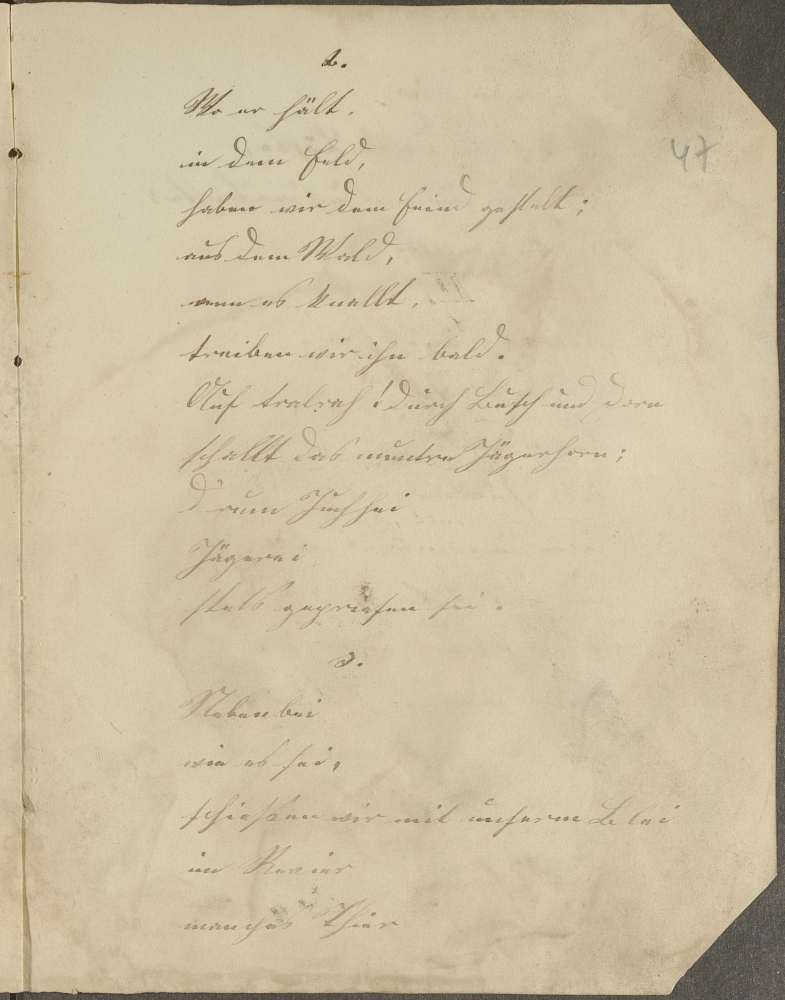 2.
Wo er hält,
in dem Feld,
47
haben wir dem Feind gestelt;
aus dem Wald,
wenn es knallt,
treiben wir ihn bald.
Auf tralrah! durch Busch und Dorn
schallt das muntre Jägerhorn;
D'rum Juchhei
Jägerei
stets gepriesen sei.
3.
Nebenbei
wie es sei,
schießen wir mit unserm Blei
im Revier
manches Thier